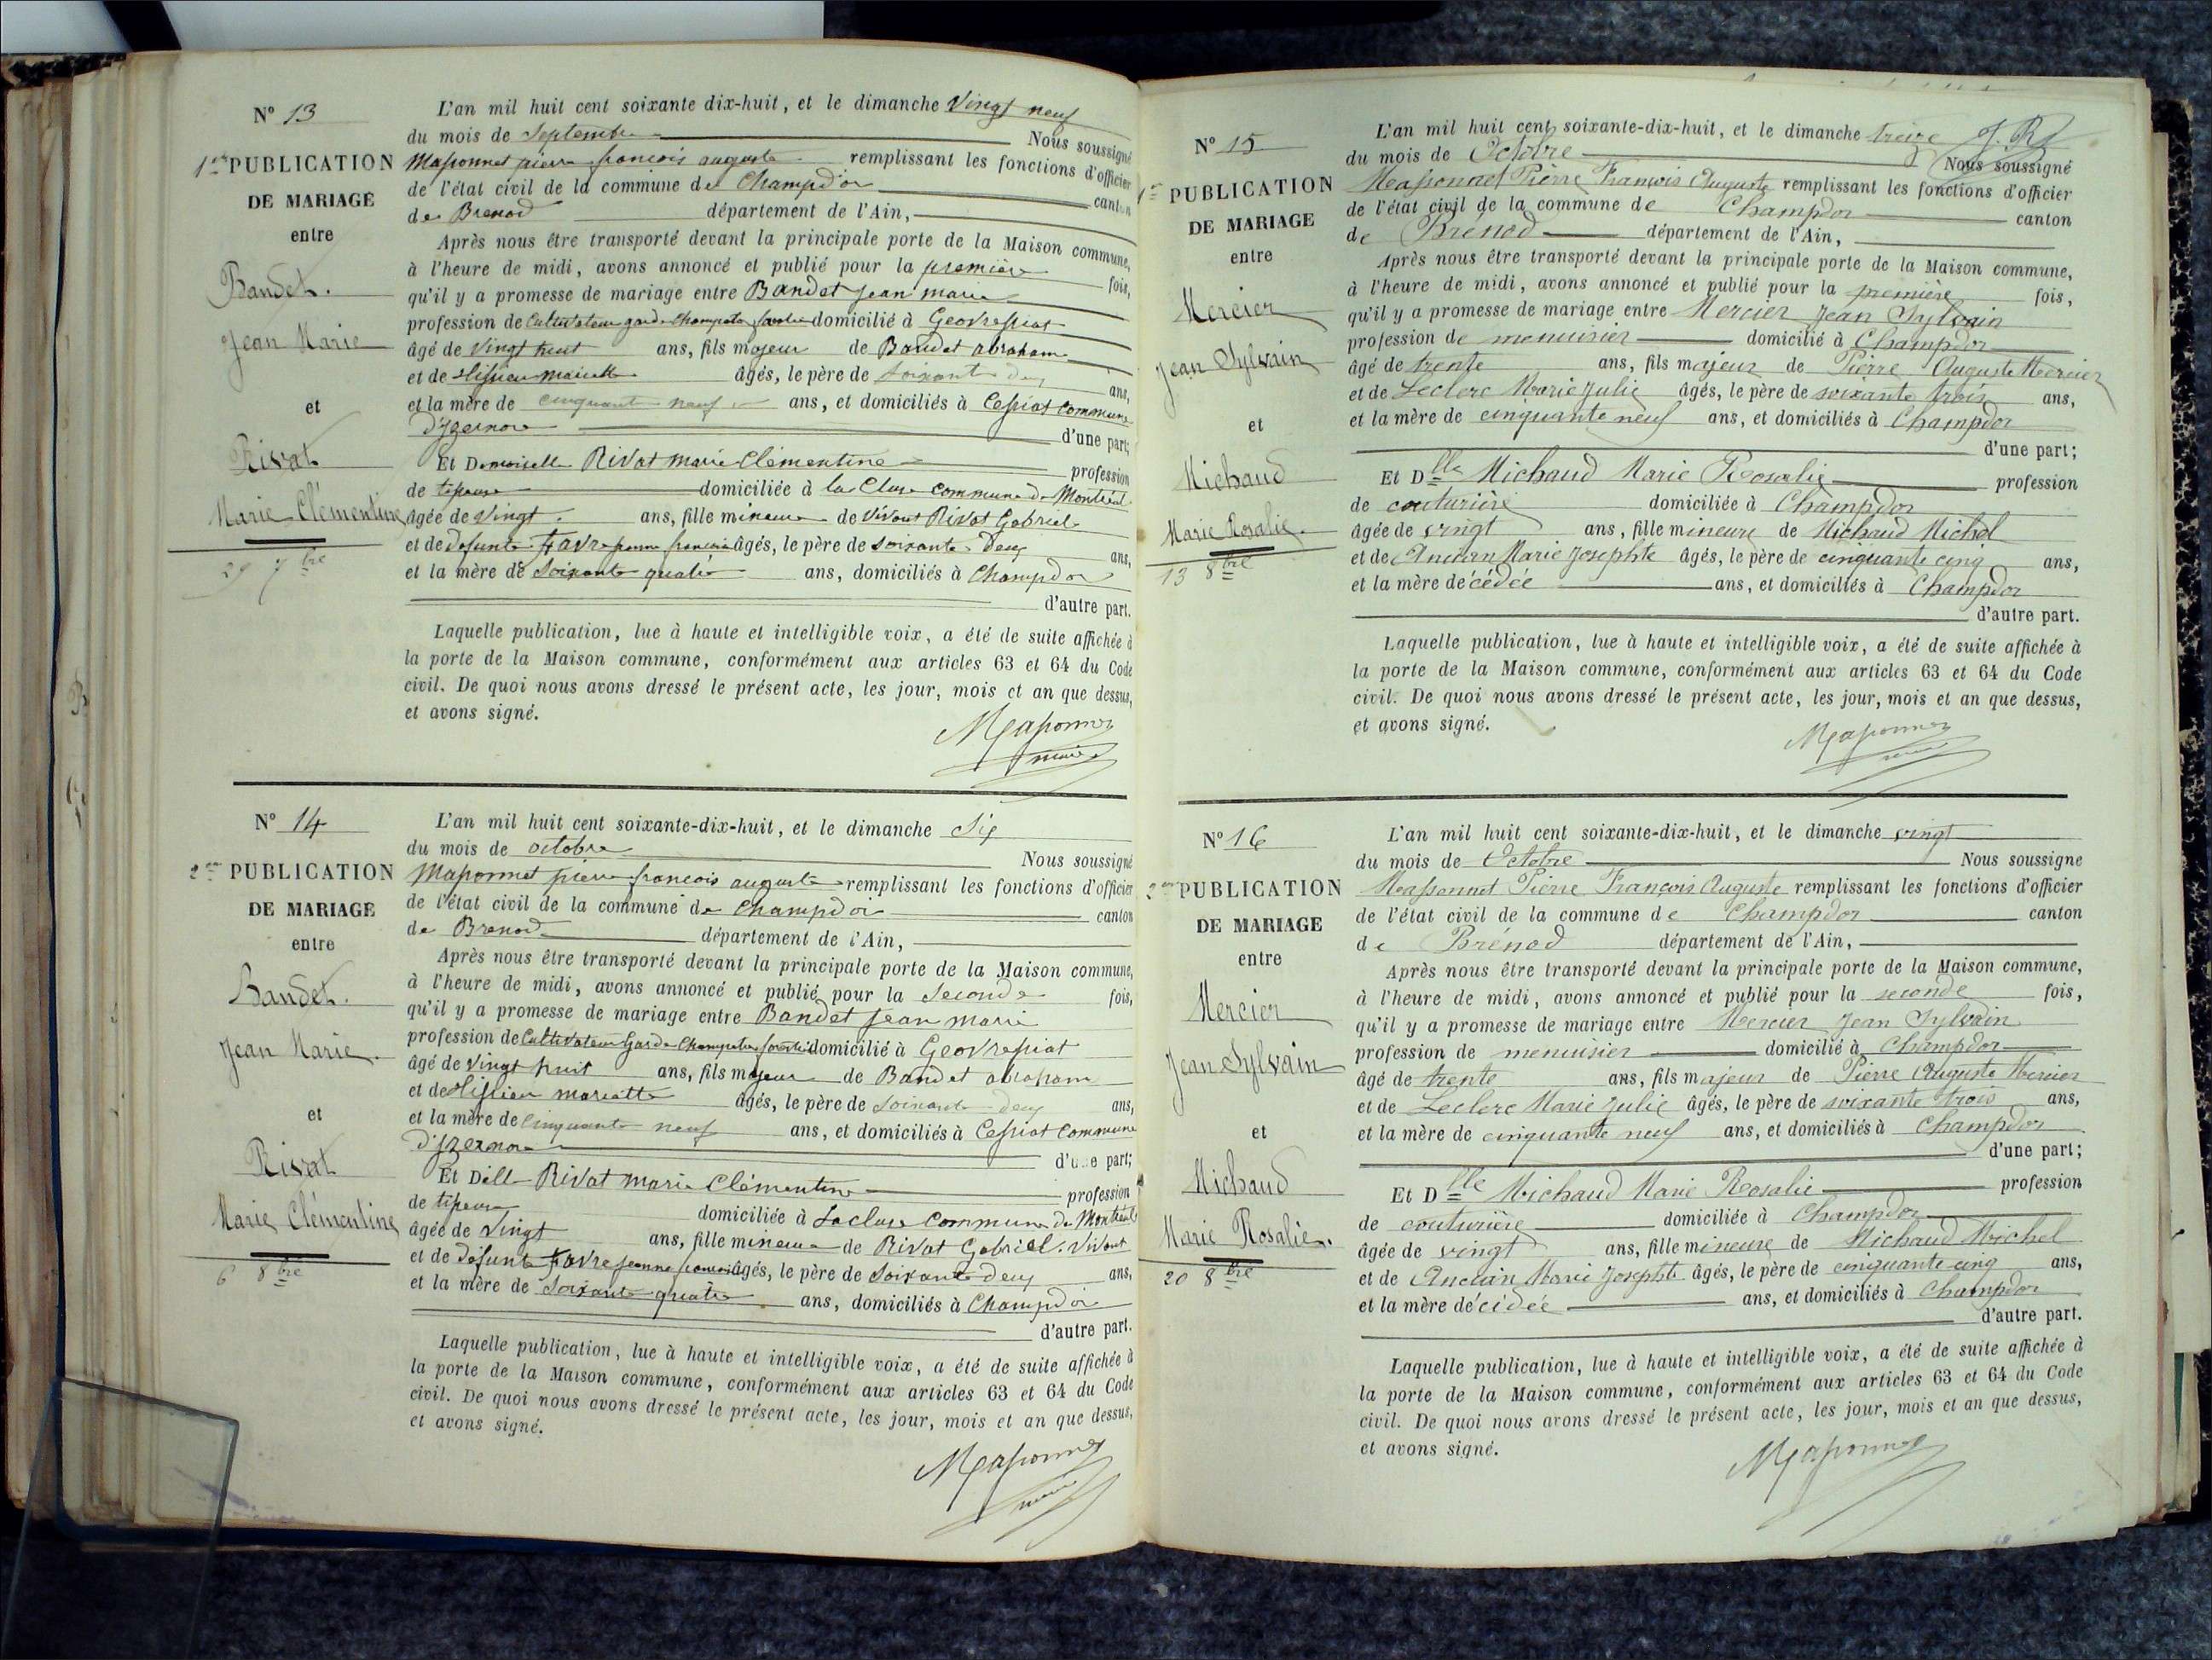 N° 13
1ère PUBLICATION
DE MARIAGE
entre
Bandet.
Jean Marie
et
Rivat
Marie Clémentine
29 7bre
L'an mil huit cent soixante dix-huit, et le dimanche Vingt neuf
du mois de Septembre Nous soussigné
Massonnet pierre francois auguste remplissant les fonctions d'officier
de l'état civil de la commune de Champdor canton
de Brenod département de l'Ain,
Après nous être transporté devant la principale porte de la Maison commune,
à l'heure de midi, avons annoncé et publié pour la première fois,
qu'il y a promesse de mariage entre Bandet Jean marie
profession de Cultivateur garde champetre domicilié à Geovressiat
âgé de Vingt huit ans, fils majeur de Bandet abraham
et de âgés, le père de soixante deux ans,
et la mère de cinquante neuf ans, et domiciliés à Cessiat commune
d'Izernore d'une part;
Et Demoiselle Rivat marie Clémentine profession
de domiciliée à la Cluse commune de Montréal
âgée de Vingt ans, fille mineure de Vivant Rivat Gabriel
et de defunte Favre jeanne françoise âgés, le père de soixante deux ans,
et la mère de soixante quatre ans, domiciliés à Champdor
d'autre part.
Laquelle publication, lue à haute et intelligible voix, a été de suite affichée à
la porte de la Maison commune, conformément aux articles 63 et 64 du Code
civil. De quoi nous avons dressé le présent acte, les jour, mois et an que dessus,
et avons signé.
Massonnet
maire
N° 14
2me PUBLICATION
DE MARIAGE
entre
Bandet.
Jean Marie.
et
Rivat
Marie Clémentine
6 8bre
L'an mil huit cent soixante-dix-huit, et le dimanche Six
du mois de octobre Nous soussigné
Massonnet pierre francois auguste remplissant les fonctions d'officier
de l'état civil de la commune de Champdor canton
de Brenod département de l'Ain,
Après nous être transporté devant la principale porte de la Maison commune,
à l'heure de midi, avons annoncé et publié pour la Seconde fois,
qu'il y a promesse de mariage entre Bandet Jean marie
profession de Cultivateur Garde Champetre domicilié à Geovressiat
âgé de Vingt huit ans, fils majeur de Bandet abraham
et de mariette âgés, le père de soixante deux ans,
et la mère de cinquante neuf ans, et domiciliés à Cessiat Commune
d'Izernore d'une part;
Et Delle Rivat marie Clémentine profession
de domiciliée à Lacluse commune de Montréal
âgée de Vingt ans, fille mineure de Rivat Gabriel. Vivant
et de défunte Favre jeanne françoise âgés, le père de soixante deux ans,
et la mère de soixante quatre ans, domiciliés à Champdor
d'autre part.
Laquelle publication, lue à haute et intelligible voix, a été de suite affichée à
la porte de la Maison commune, conformément aux articles 63 et 64 du Code
civil. De quoi nous avons dressé le présent acte, les jour, mois et an que dessus,
et avons signé.
Massonnet
maire
N° 15
1ère PUBLICATION
DE MARIAGE
entre
Mercier
Jean Sylvain
et
Michaud
Marie Rosalie.
13 8bre
L'an mil huit cent soixante-dix-huit, et le dimanche treize
du mois de Octobre Nous soussigné
Massonnet Pierre François Auguste remplissant les fonctions d'officier
de l'état civil de la commune de Champdor canton
de Brénod département de l'Ain,
Après nous être transporté devant la principale porte de la Maison commune,
à l'heure de midi, avons annoncé et publié pour la première fois,
qu'il y a promesse de mariage entre Mercier Jean Sylvain
profession de menuisier domicilié à Champdor
âgé de trente ans, fils majeur de Pierre Auguste Mercier
et de Leclerc Marie Julie âgés, le père de soixante trois ans,
et la mère de cinquante neuf ans, et domiciliés à Champdor
d'une part;
Et Dlle Michaud Marie Rosalie profession
de couturière domiciliée à Champdor
âgée de vingt ans, fille mineure de Michaud Michel
et de Ancian Marie Josephte âgés, le père de cinquante cinq ans,
et la mère décédée ans, et domiciliés à Champdor
d'autre part.
Laquelle publication, lue à haute et intelligible voix, a été de suite affichée à
la porte de la Maison commune, conformément aux articles 63 et 64 du Code
civil. De quoi nous avons dressé le présent acte, les jour, mois et an que dessus,
et avons signé.
Massonnet
maire
N° 16
2me PUBLICATION
DE MARIAGE
entre
Mercier
Jean Sylvain
et
Michaud
Marie Rosalie.
20 8bre
L'an mil huit cent soixante-dix-huit, et le dimanche vingt
du mois de Octobre Nous soussigne
Massonnet Pierre François Auguste remplissant les fonctions d'officier
de l'état civil de la commune de Champdor canton
de Brénod département de l'Ain,
Après nous être transporté devant la principale porte de la Maison commune,
à l'heure de midi, avons annoncé et publié pour la seconde fois,
qu'il y a promesse de mariage entre Mercier Jean Sylvain
profession de menuisier domicilié à Champdor
âgé de trente ans, fils majeur de Pierre Auguste Mercier
et de Leclerc Marie Julie âgés, le père de soixante trois ans,
et la mère de cinquante neuf ans, et domiciliés à Champdor
d'une part;
Et Dlle Michaud Marie Rosalie profession
de couturière domiciliée à Champdor
âgée de vingt ans, fille mineure de Michaud Michel
et de Ancian Marie Josephte âgés, le père de cinquante cinq ans,
et la mère décédée ans, et domiciliés à Champdor
d'autre part.
Laquelle publication, lue à haute et intelligible voix, a été de suite affichée à
la porte de la Maison commune, conformément aux articles 63 et 64 du Code
civil. De quoi nous avons dressé le présent acte, les jour, mois et an que dessus,
et avons signé.
Massonnet